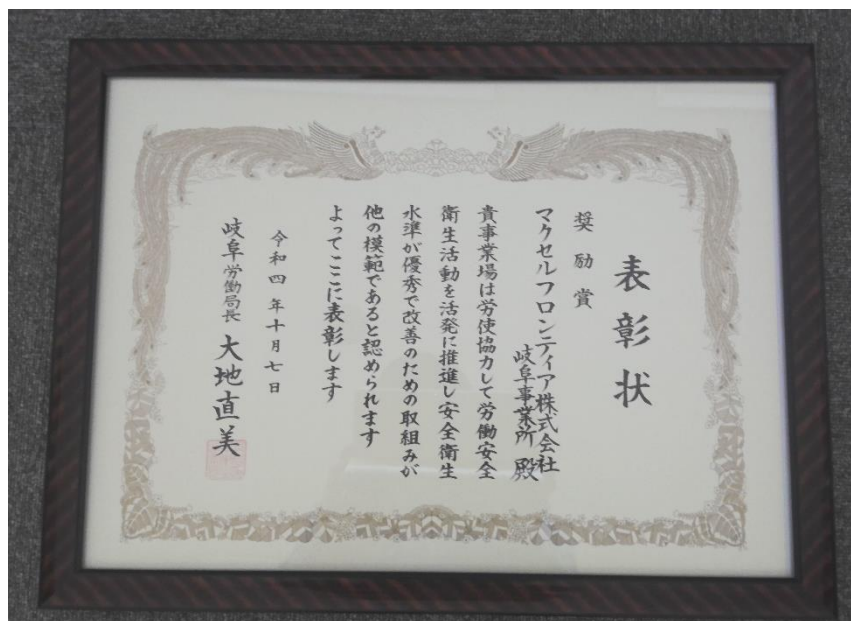 表彰状
奨励賞
マクセルフロンティア株式会社
岐阜事業所 殿
貴事業場は労使協力して労働安全
衛生活動を活発に推進し安全衛生
水準が優秀で改善のための取組みが
他の模範であると認められます
よってここに表彰します
令和四年十月七日
岐阜労働局長 大地直美